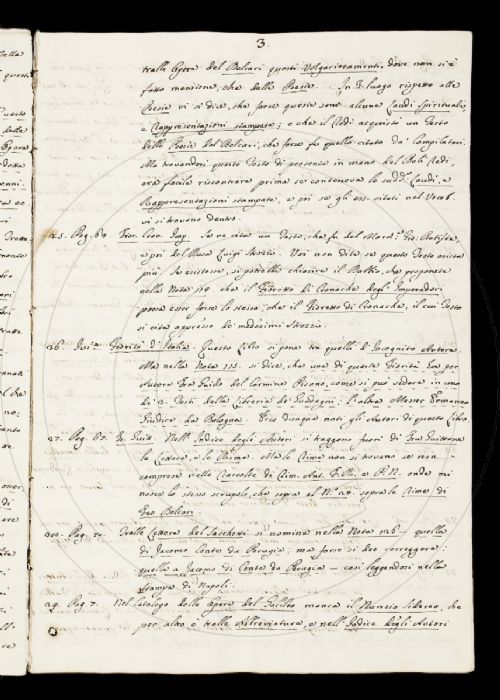 3.
tralle Opere del Belcari questi Volgarizzamenti, dove non si è
fatto menzione, che delle Poesie. In 2.° luogo rispetto alle
Poesie vi si dice, che forse queste sono alcune Laudi Spirituali,
e Rappresentazioni stampate; e che il Redi acquistò un Testo
delle Poesie del Belcari, che forse fu quello citato da' Compilatori.
Ma trovandosi questo Testo di presente in mano del Balì Redi,
era facile riscontrare prima se conteneva le sudd. Laudi, e
Rappresentazioni stampate, e poi se gli es. citati nel Vocab.
vi si trovano dentro.
25. Pag. 64. Fior. Cron. Imp. Se ne cita un Testo, che fu del March. Gio. Batista,
e poi del Duca Luigi Strozzi. Voi non dite se questo Testo esista
più. Se esistesse, si potrebbe chiarire il dubbio, che proponete
nella Nota 119 che il Fioretto di Cronache degli Imperadori
possa esser forse lo stesso, che il Fioretto di Cronache, il cui Testo
si cita appresso de' medesimi Strozzi.
26. Ivi Fiorità d'Italia. Questo Libro si pone tra quelli d'Incognito Autore.
Ma nella Nota 115. si dice, che una di queste Fiorità ha per
Autore Fra Guido del Carmine Pisano, come si può vedere in uno
de' 3. Testi della Libreria de' Guadagni: l'altra Messer Armanno
Giudice da Bologna. Ecco dunque noti gli Autori di questo Libro.
27. Pag. 67. Fr. Guitt. Nell'Indice degli Autori si traggono fuori di Fra Guittone
le Lettere, e le Rime. Ma le Rime non si trovano se non
comprese nelle Raccolte di Rim. Ant. F. R. e P. N. onde mi
nasce lo stesso scrupolo, che sopra al N. 24. sopra le Rime di
Feo Belcari.
Pag. 70. Tralle Lettere del Sacchetti si nomina nella Nota 126 — quella
di Jacomo Conte da Perugia; ma forse si dee correggere:
quella a Jacomo di Conte da Perugia — così leggendosi nella
stampa di Napoli.
29. Pag. 7. Nel Catalogo delle Opere del Galileo manca il Nunzio Sidereo, che
per altro è tralle Abbreviature, e nell'Indice degli Autori